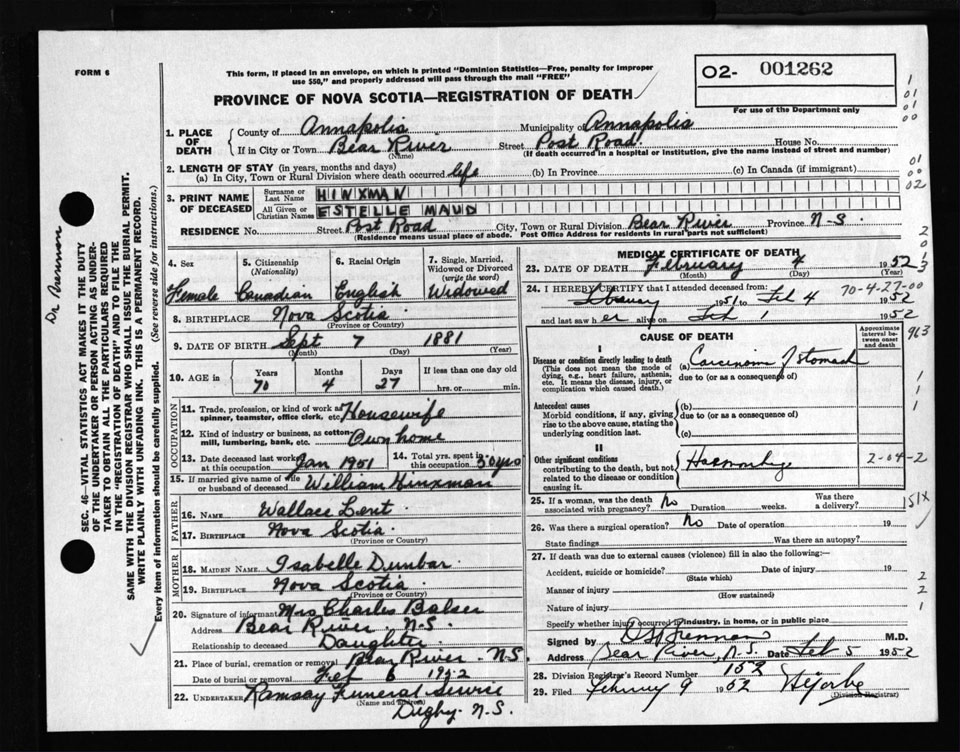 FORM 6
This form, if placed in an envelope, on which is printed "Dominion Statistics—Free, penalty for improper
use $50," and properly addressed will pass through the mail "FREE"
02- 001262
For use of the Department only
PROVINCE OF NOVA SCOTIA—REGISTRATION OF DEATH
1. PLACE OF DEATH { County of Annapolis Municipality of Annapolis
If in City or Town Bear River (Name) Street Post Road House No.
(If death occurred in a hospital or institution, give the name instead of street and number)
2. LENGTH OF STAY (in years, months and days)
(a) In City, Town or Rural Division where death occurred life (b) In Province (c) In Canada (if immigrant)
3. PRINT NAME OF DECEASED { Surname or Last Name HINXMAN
All Given or Christian Names ESTELLE MAUD
RESIDENCE No. Street Post Road City, Town or Rural Division Bear River Province N-S.
(Residence means usual place of abode. Post Office Address for residents in rural parts not sufficient)
SEC. 46—VITAL STATISTICS ACT MAKES IT THE DUTY
OF THE UNDERTAKER OR PERSON ACTING AS UNDER-
TAKER TO OBTAIN ALL THE PARTICULARS REQUIRED
IN THE "REGISTRATION OF DEATH" AND TO FILE THE
SAME WITH THE DIVISION REGISTRAR WHO SHALL ISSUE THE BURIAL PERMIT.
WRITE PLAINLY WITH UNFADING INK. THIS IS A PERMANENT RECORD.
Every item of information should be carefully supplied. (See reverse side for instructions.)
4. Sex
Female
5. Citizenship (Nationality)
Canadian
6. Racial Origin
English
7. Single, Married, Widowed or Divorced (write the word)
Widowed
8. BIRTHPLACE Nova Scotia
(Province or Country)
9. DATE OF BIRTH Sept 7 1881
(Month) (Day) (Year)
10. AGE in { Years 70 Months 4 Days 27 If less than one day old hrs. or min.
OCCUPATION
11. Trade, profession, or kind of work as spinner, teamster, office clerk, etc. Housewife
12. Kind of industry or business, as cotton mill, lumbering, bank, etc. Own home
13. Date deceased last worked at this occupation Jan 1951 14. Total yrs. spent in this occupation 50 yrs
15. If married give name of wife or husband of deceased William Hinxman
FATHER
16. NAME Wallace Lent
17. BIRTHPLACE Nova Scotia
(Province or Country)
MOTHER
18. MAIDEN NAME Isabelle Dunbar
19. BIRTHPLACE Nova Scotia
(Province or Country)
20. Signature of informant Mrs Charles Balser
Address Bear River. N.S.
Relationship to deceased Daughter
21. Place of burial, cremation or removal Bear River. N.S
Date of burial or removal Feb 6 1952
22. UNDERTAKER Ramsay Funeral Service
(Name and address)
Digby. N.S.
MEDICAL CERTIFICATE OF DEATH
23. DATE OF DEATH February 4 1952
(Month) (Day) (Year)
24. I HEREBY CERTIFY that I attended deceased from: 70-4-27-00
1951 to Feb 4 1952
and last saw her alive on Feb 1 1952
CAUSE OF DEATH
Approximate interval between onset and death
I
Disease or condition directly leading to death
(This does not mean the mode of dying, e.g., heart failure, asthenia, etc. It means the disease, injury, or complication which caused death.)
(a) Carcinoma of stomach
due to (or as a consequence of)
Antecedent causes
Morbid conditions, if any, giving rise to the above cause, stating the underlying condition last.
(b)
due to (or as a consequence of)
(c)
II
Other significant conditions
contributing to the death, but not related to the disease or condition causing it.
2-04-2
25. If a woman, was the death associated with pregnancy? No Duration weeks. Was there a delivery? 151X
26. Was there a surgical operation? No Date of operation 19
State findings Was there an autopsy?
27. If death was due to external causes (violence) fill in also the following:—
Accident, suicide or homicide? Date of injury 19
(State which)
Manner of injury
(How sustained)
Nature of injury
Specify whether injury occurred in industry, in home, or in public place
Signed by Brennan M.D.
Address Bear River, N.S. Date Feb 5 1952
28. Division Registrar's Record Number 153
29. Filed February 9 1952
(Division Registrar)